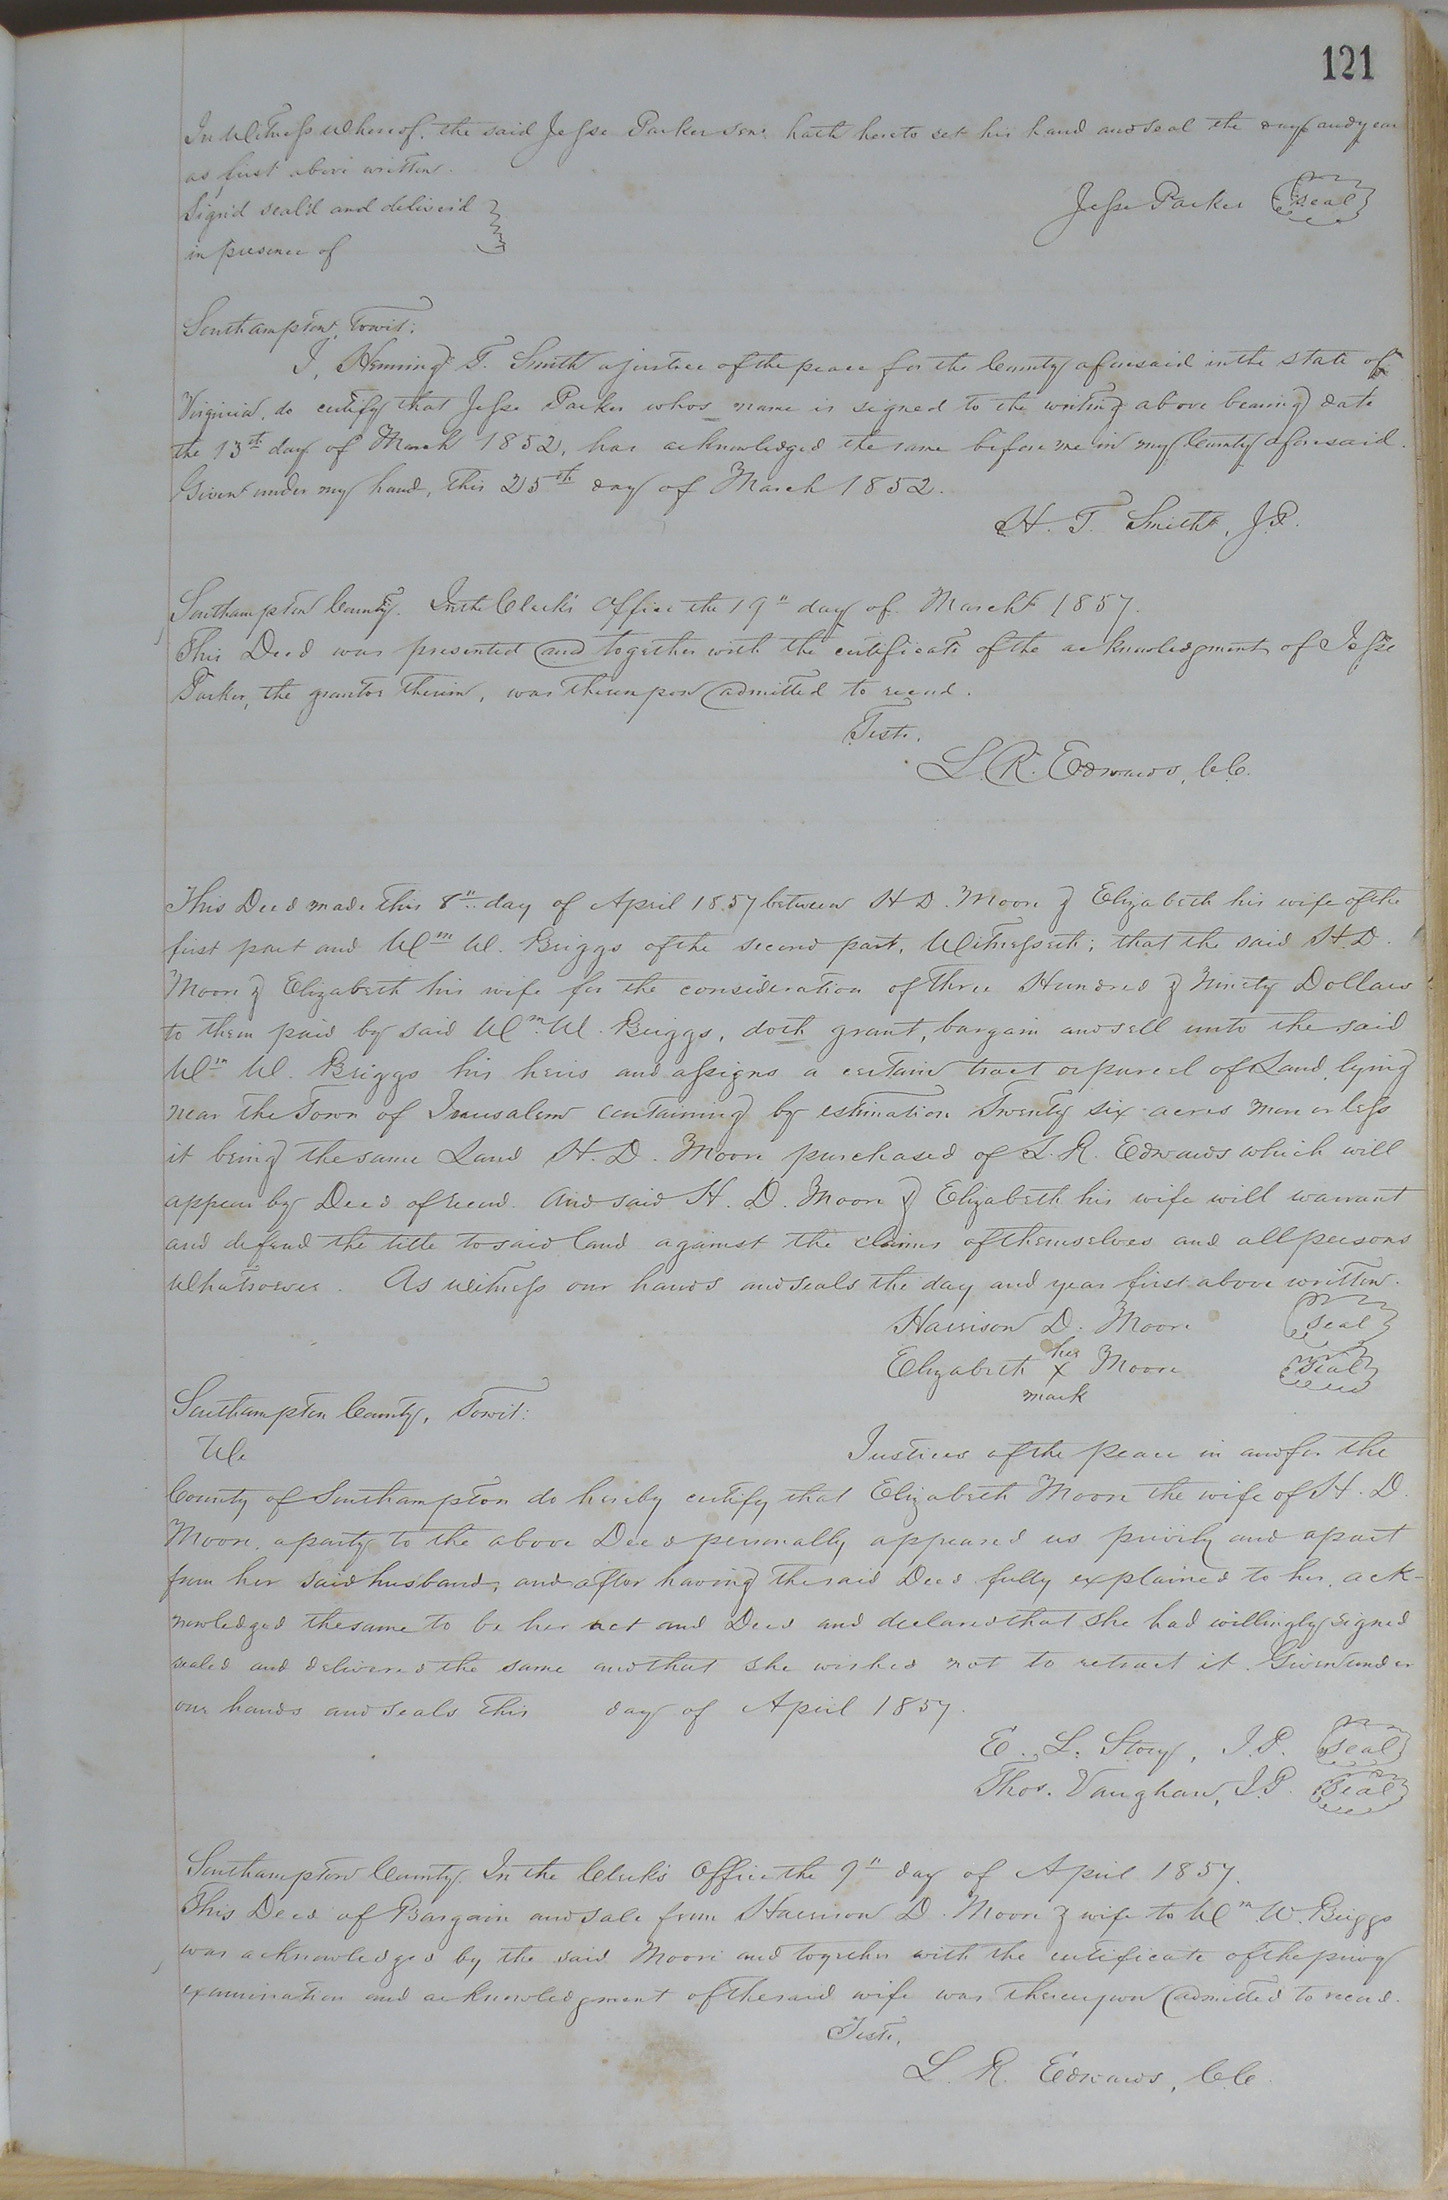 121
In Witness whereof, the said Jesse Parker Senr hath hereto set his hand and seal the day and year
as first above written.
Sign'd seal'd and deliver'd
in presence of
Jesse Parker Seal
Southampton, Towit:
I, Henning T. Smith a justice of the peace for the County aforesaid in the state of
Virginia, do certify that Jesse Parker whos name is signed to the writing above bearing date
the 13th day of March 1852, has acknowledged the same before me in my County aforesaid.
Given under my hand, this 25th day of March 1852.
H. T. Smith, J.P.
Southampton County. In the Clerk's Office the 19" day of March 1857.
This Deed was presented and together with the certificate of the acknowledgment of Jesse
Parker, the grantor therein, was thereupon admitted to record.
Teste.
L. R. Edwards, C.C.
This Deed made this 8" day of April 1857 between H D. Moore & Elizabeth his wife of the
first part and Wm W. Briggs of the second part, Witnesseth; that the said H. D.
Moore & Elizabeth his wife for the consideration of Three Hundred & Ninety Dollars
to them paid by said Wm W. Briggs, doth grant, bargain and sell unto the said
Wm W. Briggs his heirs and assigns a certain tract or parcel of Land lying
near the Town of Jerusalem containing by estimation Twenty six acres more or less
it being the same Land H. D. Moore purchased of L. R. Edwards which will
appear by Deed of record. And said H. D. Moore & Elizabeth his wife will warrant
and defend the title to said land against the claims of themselves and all persons
whatsoever. As witness our hands and seals the day and year first above written.
Harrison D. Moore Seal
her
Elizabeth x Moore Seal
mark
Southampton County, Towit:
We Justices of the peace in and for the
County of Southampton do hereby certify that Elizabeth Moore the wife of H. D.
Moore, a party to the above Deed personally appeared us privily and apart
from her said husband, and after having the said Deed fully explained to her, ack-
nowledged the same to be her act and Deed and declared that she had willingly signed
sealed and delivered the same and that she wished not to retract it. Given under
our hands and seals this day of April 1857.
E. L. Story, J.P. Seal
Thos. Vaughan, J.P. Seal
Southampton County. In the Clerk's Office the 9" day of April 1857.
This Deed of Bargain and Sale from Harrison D. Moore & wife to Wm W. Briggs
was acknowledged by the said Moore and together with the certificate of the privy
examination and acknowledgment of the said wife was thereupon admitted to record.
Teste.
L. R. Edwards, C.C.